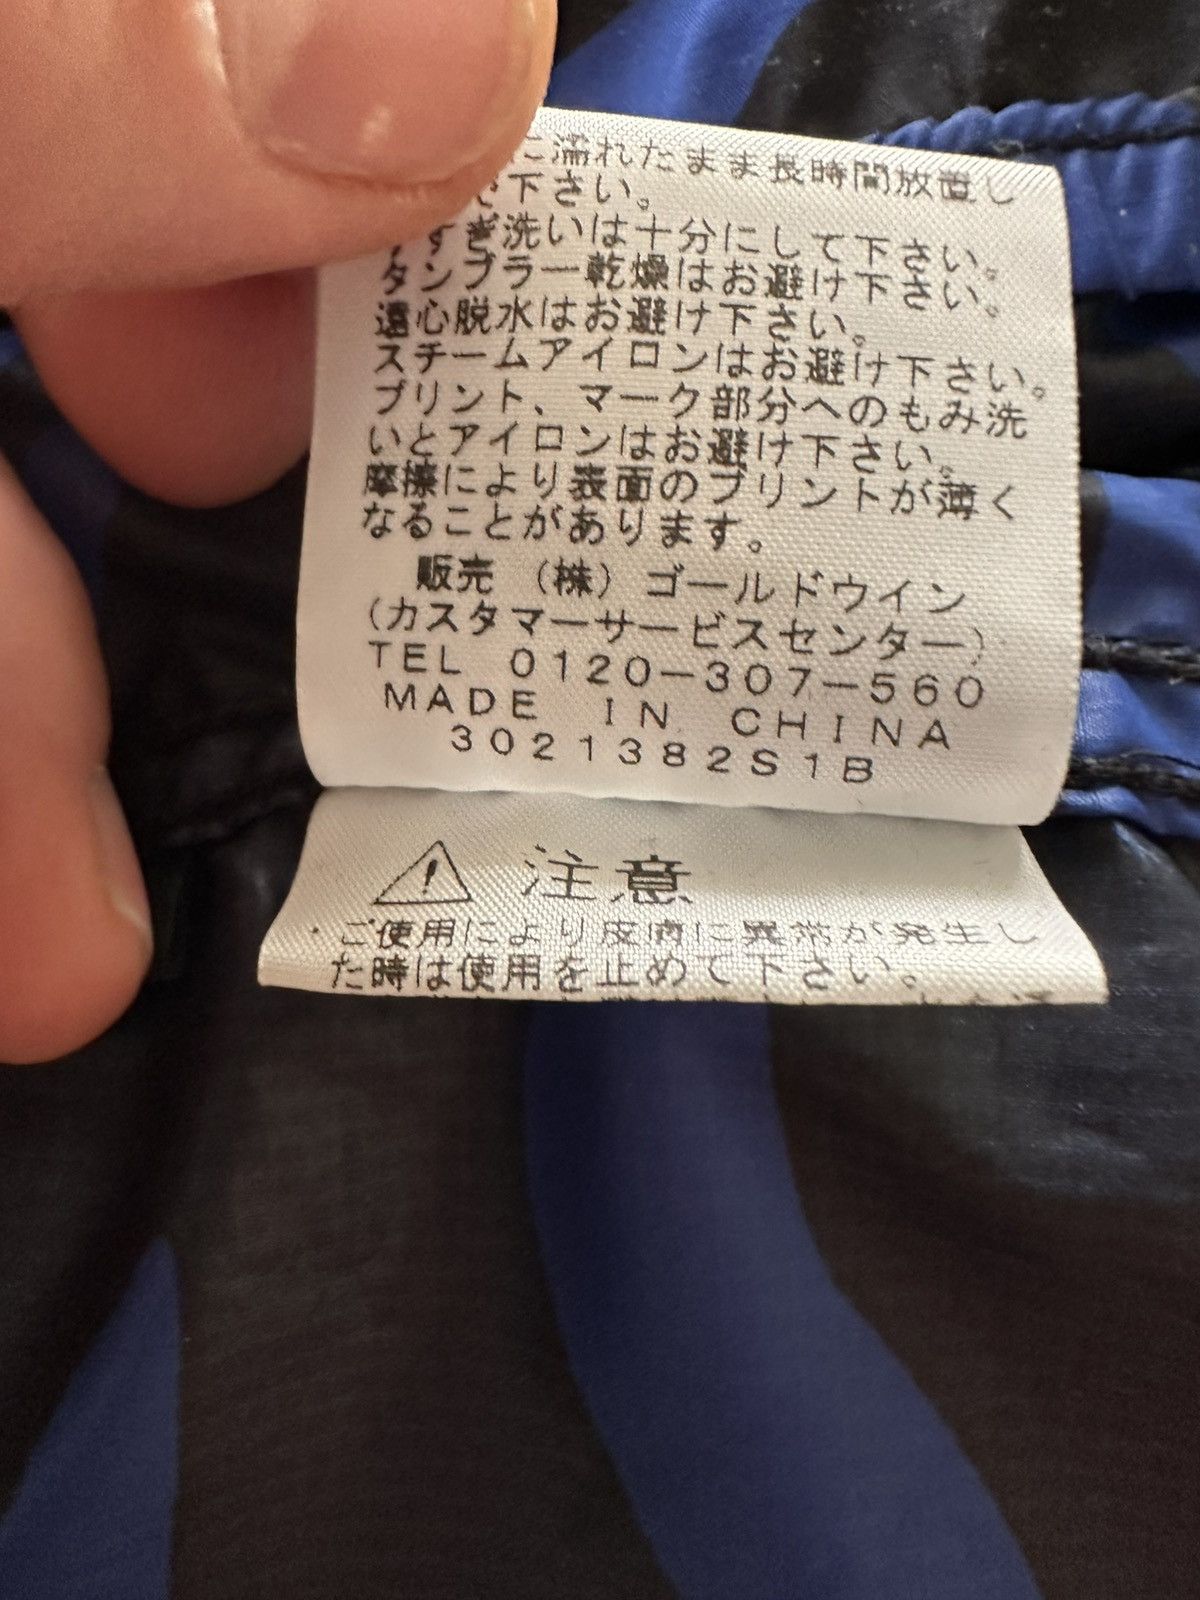 に濡れたまま長時間放置し
で下さい。
すぎ洗いは十分にして下さい。
タンブラー乾燥はお避け下さい。
遠心脱水はお避け下さい。
スチームアイロンはお避け下さい。
プリント、マーク部分へのもみ洗
いとアイロンはお避け下さい。
摩擦により表面のプリントが薄く
なることがあります。
販売 （株）ゴールドウイン
（カスタマーサービスセンター）
TEL 0120-307-560
MADE IN CHINA
3021382S1B
注意
・ご使用により皮膚に異常が発生し
た時は使用を止めて下さい。